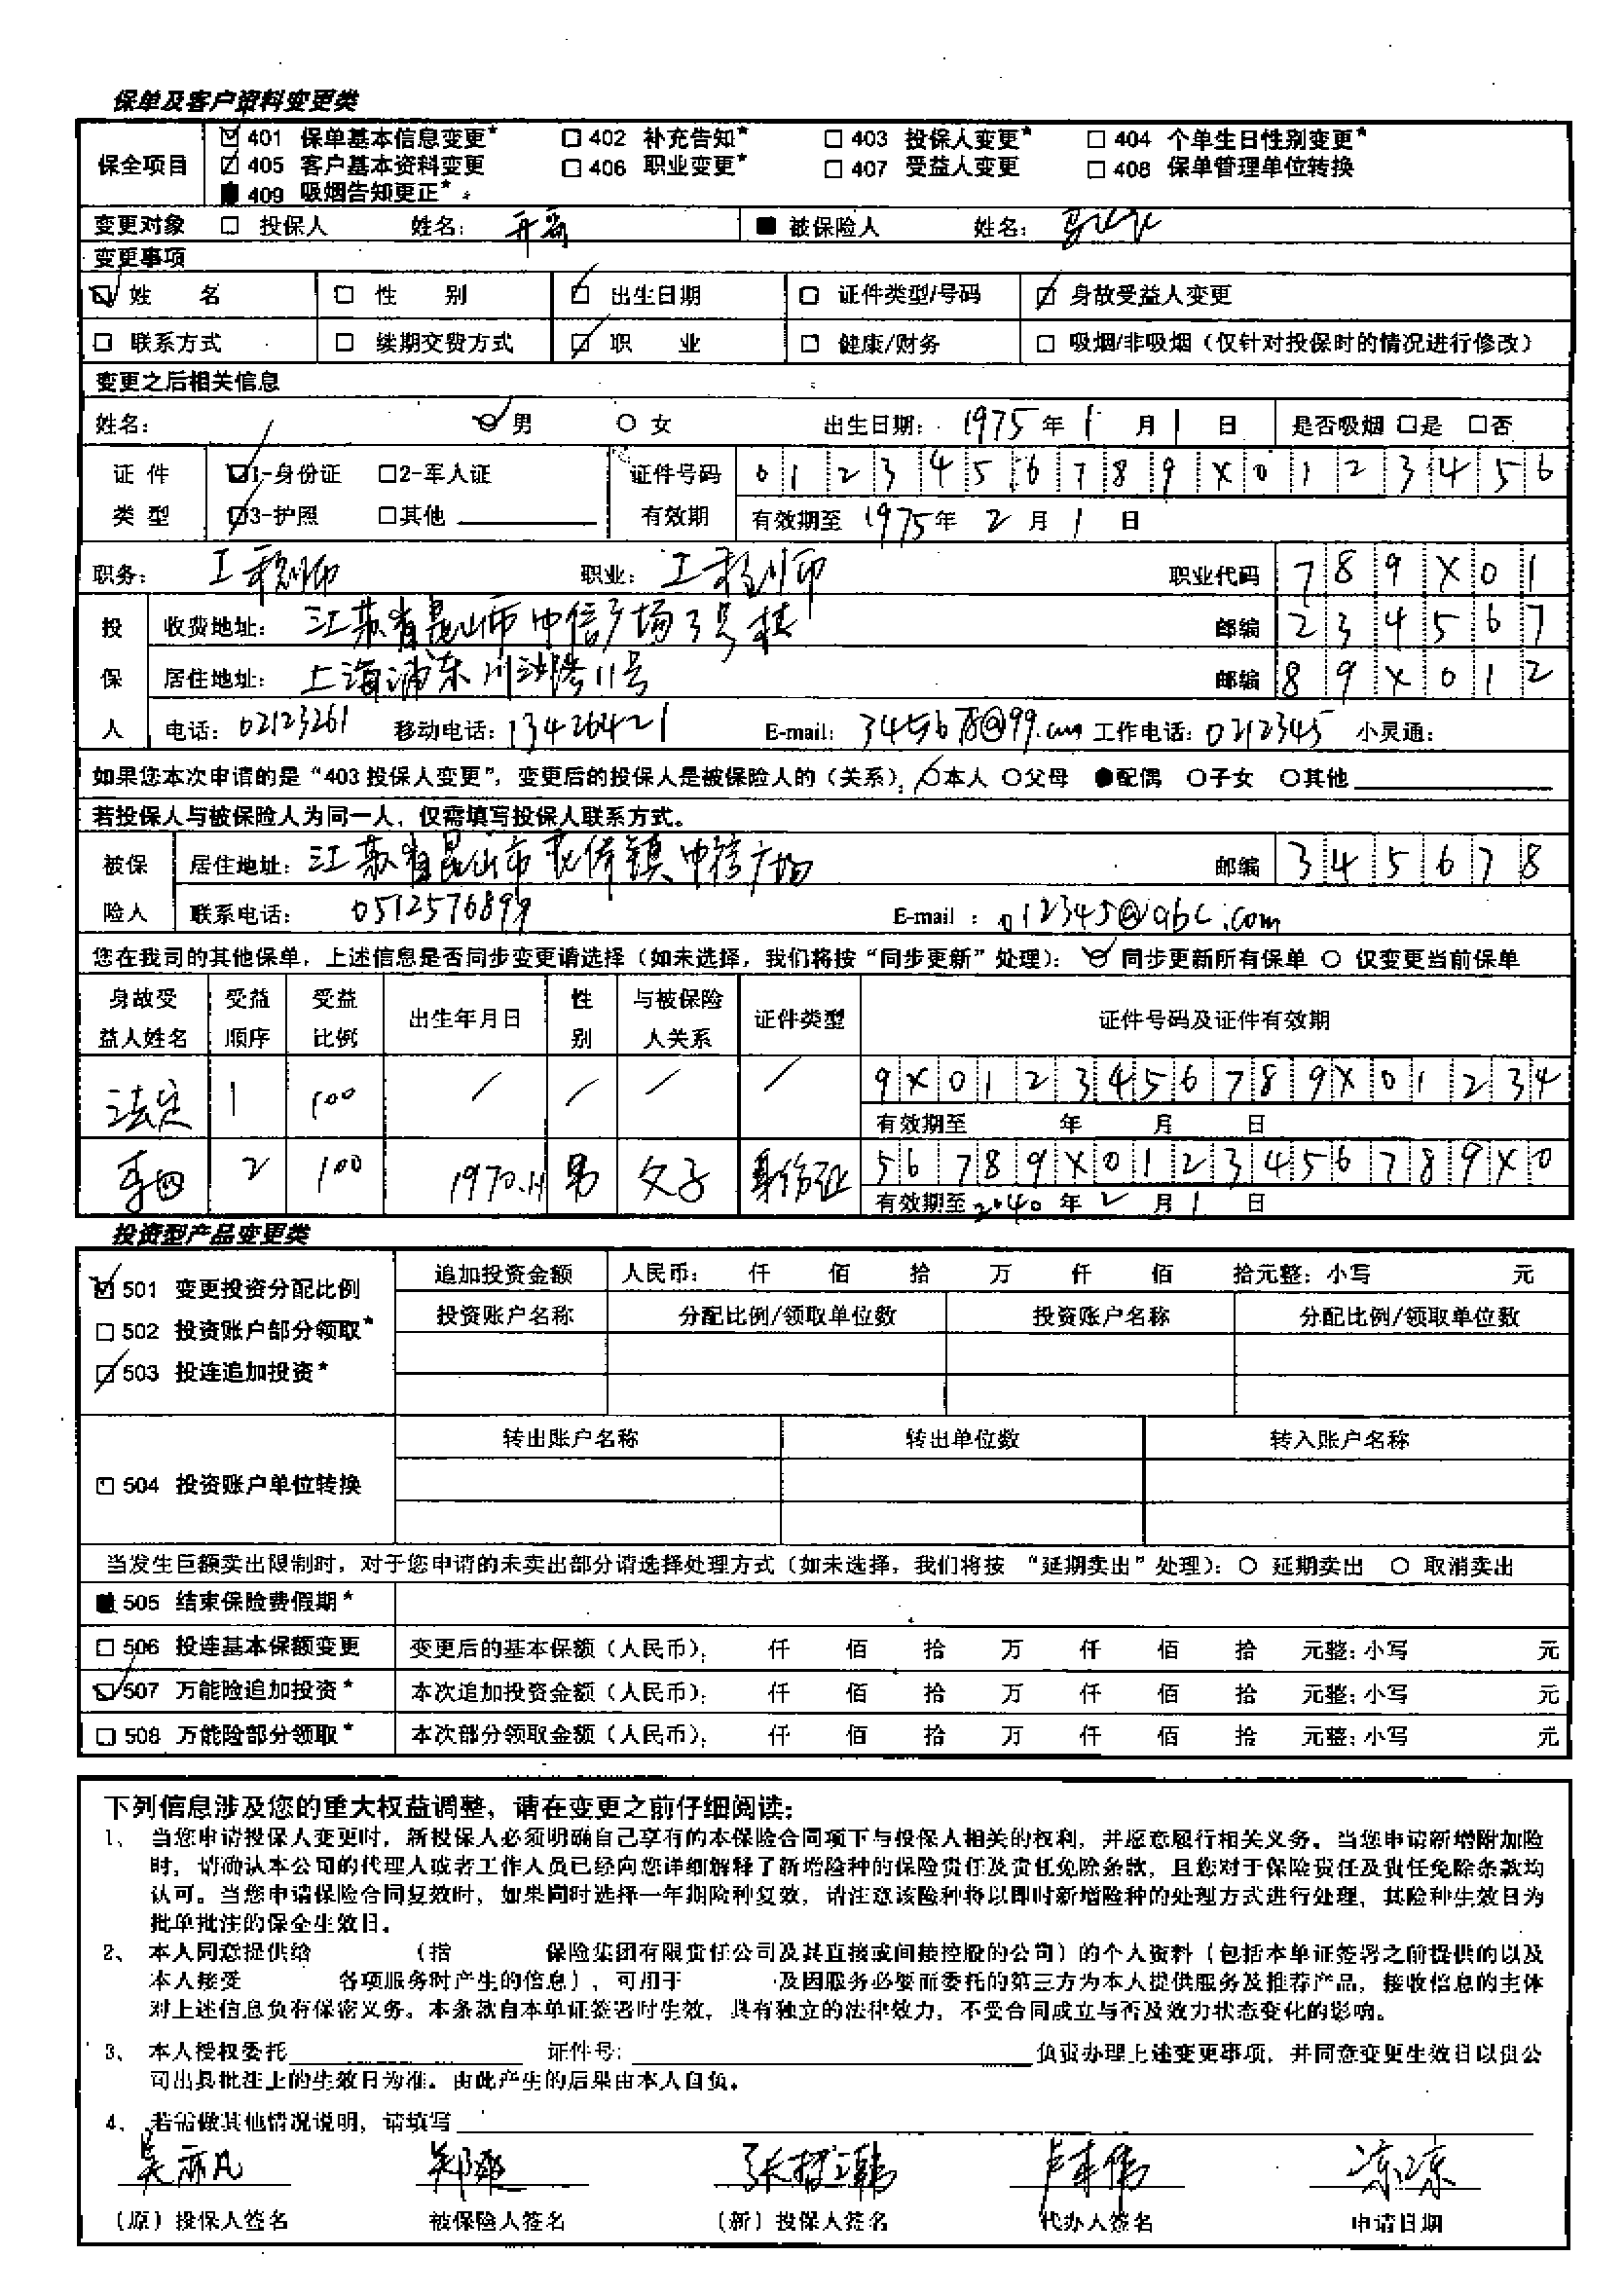 保单及客户资料变更类
保全项目
401 保单基本信息变更* 402 补充告知* 403 投保人变更* 404 个单生日性别变更*
405 客户基本资料变更 406 职业变更* 407 受益人变更 408 保单管理单位转换
409 吸烟告知更正*
变更对象 投保人 姓名: 被保险人 姓名:
变更事项
姓 名 性 别 出生日期 证件类型/号码 身故受益人变更
联系方式 续期交费方式 职 业 健康/财务 吸烟/非吸烟(仅针对投保时的情况进行修改)
变更之后相关信息
姓名: 男 女 出生日期: 1975年1月1日 是否吸烟 是 否
证件类型 1-身份证 2-军人证 证件号码 0123456789X0123456
3-护照 其他 有效期 有效期至 1975年2月1日
职务: 工程师 职业: 工程师 职业代码 789X01
投保人 收费地址: 江苏省昆山市中信广场3号楼 邮编 234567
居住地址: 上海浦东川沙路11号 邮编 89X012
电话: 02123261 移动电话: 13426421 E-mail: 345678@99.com 工作电话: 0212345 小灵通:
如果您本次申请的是“403投保人变更”,变更后的投保人是被保险人的(关系): 本人 父母 配偶 子女 其他
若投保人与被保险人为同一人,仅需填写投保人联系方式。
被保险人 居住地址: 江苏省昆山市 镇中 广场 邮编 345678
联系电话: 0512576899 E-mail : 012345@abc.com
您在我司的其他保单,上述信息是否同步变更请选择(如未选择,我们将按“同步更新”处理): 同步更新所有保单 仅变更当前保单
身故受益人姓名 受益顺序 受益比例 出生年月日 性别 与被保险人关系 证件类型 证件号码及证件有效期
法定 1 100 / / / / 9X0123456789X01234
有效期至 年 月 日
李四 2 100 1970.11 男 父子 身份证 56789X0123456789X0
有效期至2040年2月1日
投资型产品变更类
501 变更投资分配比例 追加投资金额 人民币: 仟 佰 拾 万 仟 佰 拾元整: 小写 元
502 投资账户部分领取* 投资账户名称 分配比例/领取单位数 投资账户名称 分配比例/领取单位数
503 投连追加投资*
504 投资账户单位转换 转出账户名称 转出单位数 转入账户名称
当发生巨额卖出限制时,对于您申请的未卖出部分请选择处理方式(如未选择,我们将按“延期卖出”处理): 延期卖出 取消卖出
505 结束保险费假期*
506 投连基本保额变更 变更后的基本保额(人民币): 仟 佰 拾 万 仟 佰 拾 元整: 小写 元
507 万能险追加投资* 本次追加投资金额(人民币): 仟 佰 拾 万 仟 佰 拾 元整: 小写 元
508 万能险部分领取* 本次部分领取金额(人民币): 仟 佰 拾 万 仟 佰 拾 元整: 小写 元
下列信息涉及您的重大权益调整,请在变更之前仔细阅读:
1、 当您申请投保人变更时,新投保人必须明确自己享有的本保险合同项下与投保人相关的权利,并愿意履行相关义务。当您申请新增附加险
时,请确认本公司的代理人或者工作人员已经向您详细解释了新增险种的保险责任及责任免除条款,且您对于保险责任及责任免除条款均
认可。当您申请保险合同复效时,如果同时选择一年期险种复效,请注意该险种将以即时新增险种的处理方式进行处理,其险种生效日为
批单批注的保全生效日。
2、 本人同意提供给 (指 保险集团有限责任公司及其直接或间接控股的公司)的个人资料(包括本单证签署之前提供的以及
本人接受 各项服务时产生的信息),可用于 及因服务必要而委托的第三方为本人提供服务及推荐产品,接收信息的主体
对上述信息负有保密义务。本条款自本单证签署时生效,具有独立的法律效力,不受合同成立与否及效力状态变化的影响。
3、 本人授权委托 证件号: 负责办理上述变更事项,并同意变更生效日以贵公
司出具批注上的生效日为准。由此产生的后果由本人自负。
4、 若需做其他情况说明,请填写
吴亦凡 郑爽 张哲瀚 卢本伟 凉凉
(原)投保人签名 被保险人签名 (新)投保人签名 代办人签名 申请日期